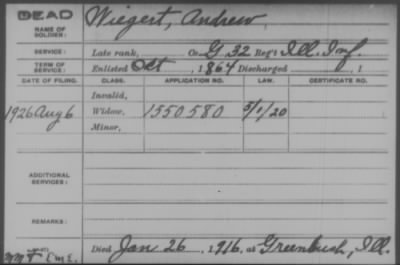 DEAD
NAME OF SOLDIER: Wiegert, Andrew
SERVICE: Late rank, Co. G, 32 Reg't Ill. Inf.
TERM OF SERVICE: Enlisted Oct , 1864 Discharged , 1
DATE OF FILING. CLASS. APPLICATION NO. LAW. CERTIFICATE NO.
Invalid,
1926 Aug 6 Widow, 1550580 5/1/20
Minor,
ADDITIONAL SERVICES:
REMARKS:
Died Jan 26, 1916, at Greenbush, Ill.